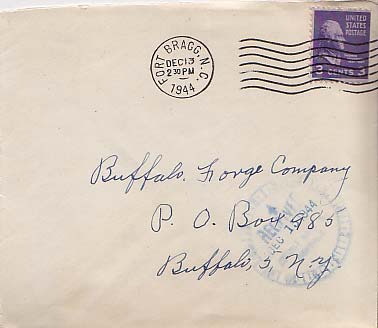 FORT BRAGG, N.C.
DEC 13
2 30 PM
1944
UNITED
STATES
POSTAGE
3 CENTS 3
Buffalo Forge Company
P. O. Box 985
Buffalo, 5, N.Y.
DEC 1 1944